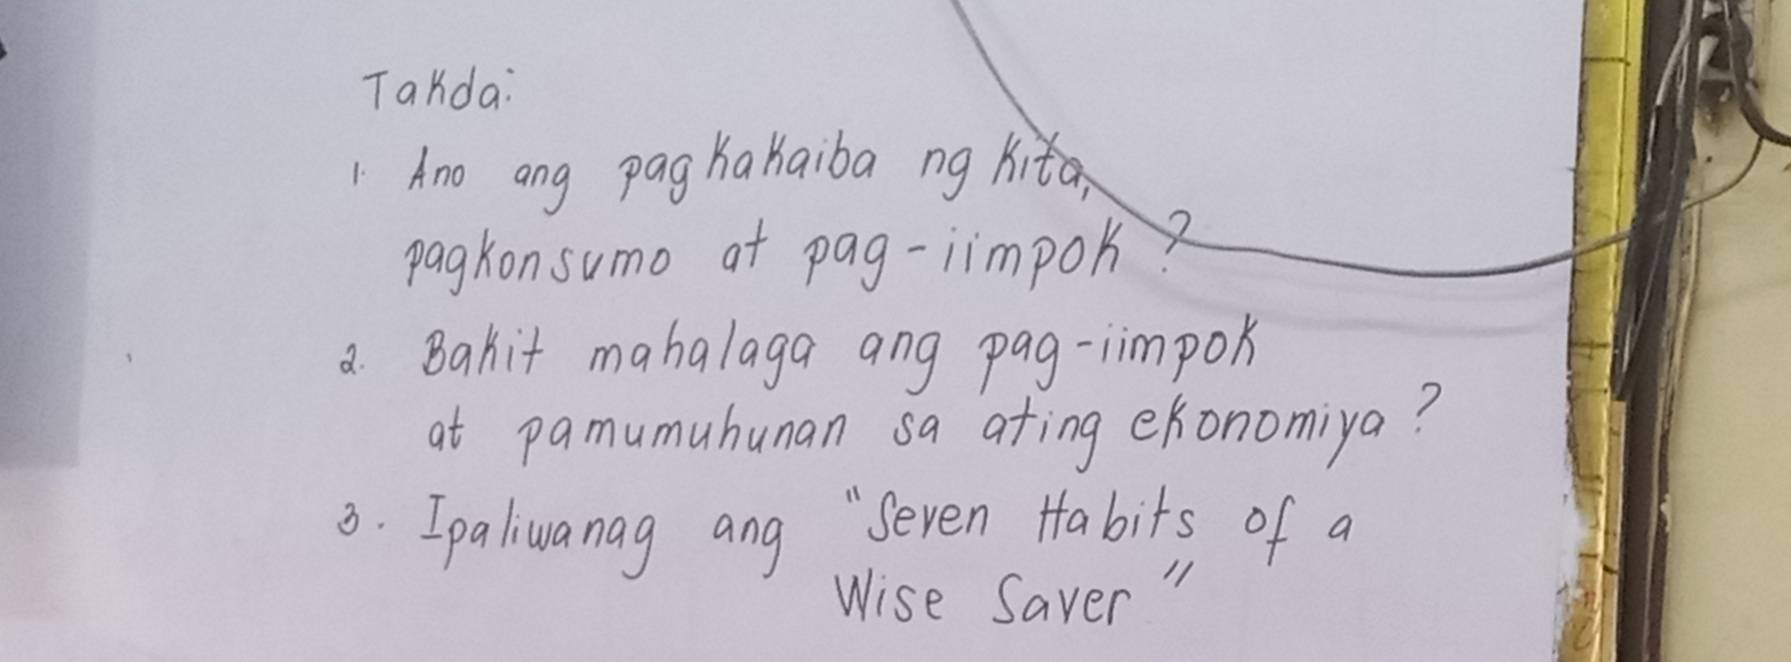 Takda:
1. Ano ang pagkakaiba ng kita,
pagkonsumo at pag-iimpok?
2. Bakit mahalaga ang pag-iimpok
at pamumuhunan sa ating ekonomiya?
3. Ipaliwanag ang "Seven Habits of a
Wise Saver"